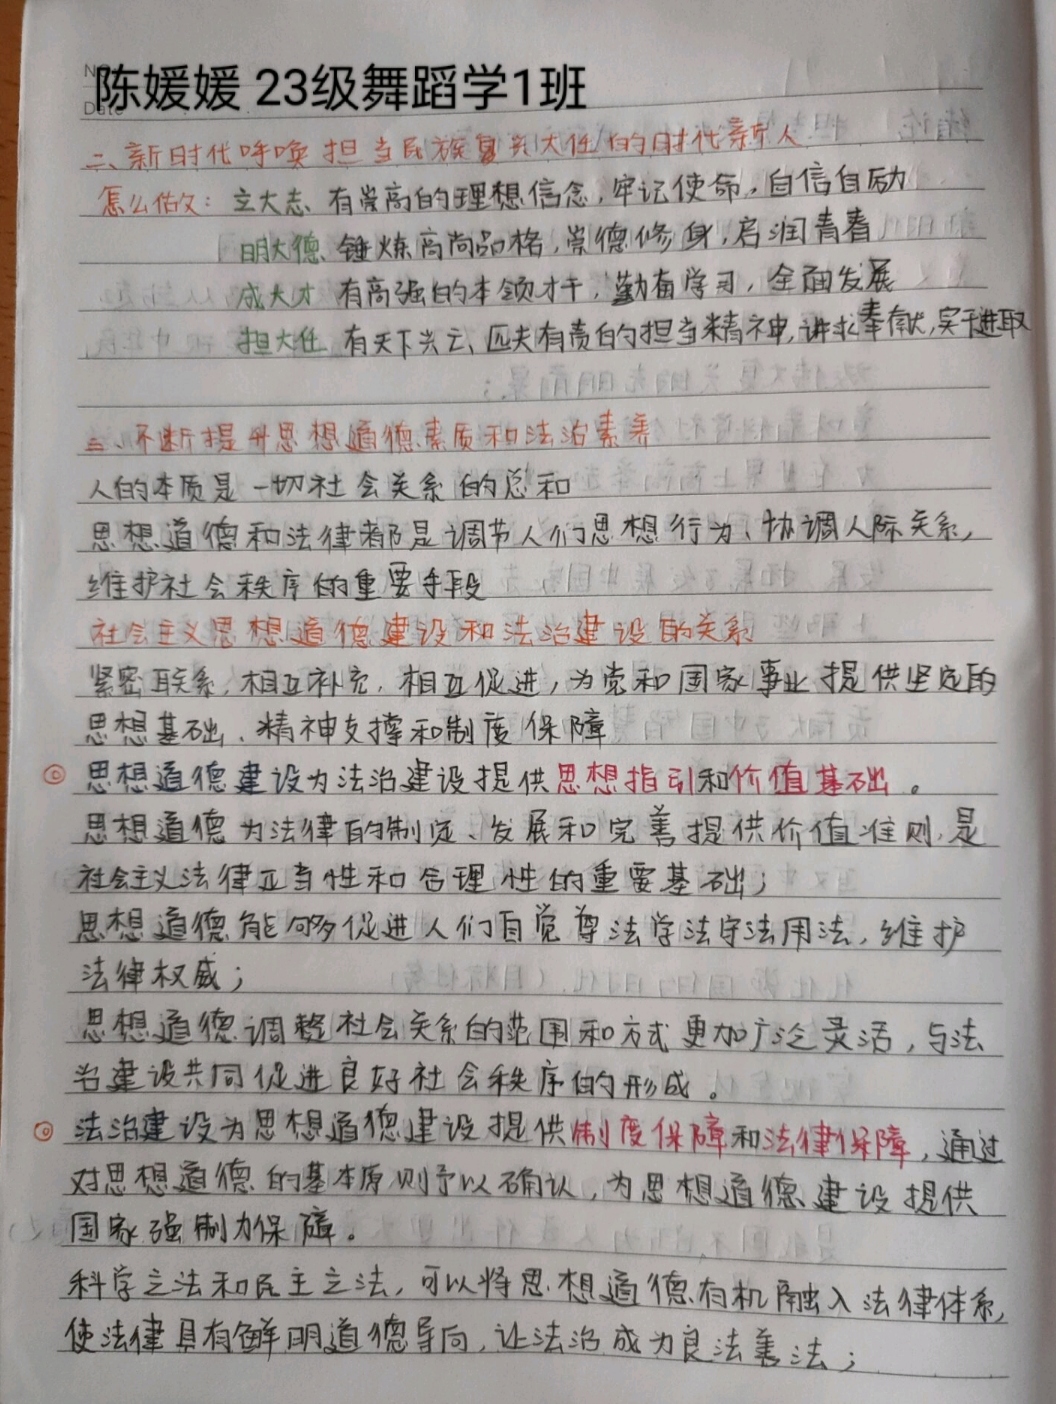 陈媛媛 23级舞蹈学1班
No
Date
二、新时代呼唤担当民族复兴大任的时代新人
怎么做：立大志、有崇高的理想信念，牢记使命，自信自励
明大德、锤炼高尚品格，崇德修身，启润青春
成大才 有高强的本领才干，勤奋学习，全面发展
担大任 有天下兴亡、匹夫有责的担当精神，讲求奉献，实干进取
三、不断提升思想道德素质和法治素养
人的本质是一切社会关系的总和
思想道德和法律都是调节人们思想行为、协调人际关系，
维护社会秩序的重要手段
社会主义思想道德建设和法治建设的关系
紧密联系，相互补充，相互促进，为党和国家事业提供坚定的
思想基础、精神支撑和制度保障
◎ 思想道德建设为法治建设提供思想指引和价值基础。
思想道德为法律的制定、发展和完善提供价值准则，是
社会主义法律正当性和合理性的重要基础；
思想道德能够促进人们自觉尊法学法守法用法，维护
法律权威；
思想道德调整社会关系的范围和方式更加广泛灵活，与法
治建设共同促进良好社会秩序的形成。
◎ 法治建设为思想道德建设提供制度保障和法律保障，通过
对思想道德的基本原则予以确认，为思想道德建设提供
国家强制力保障。
科学立法和民主立法，可以将思想道德有机融入法律体系，
使法律具有鲜明道德导向，让法治成为良法善法；